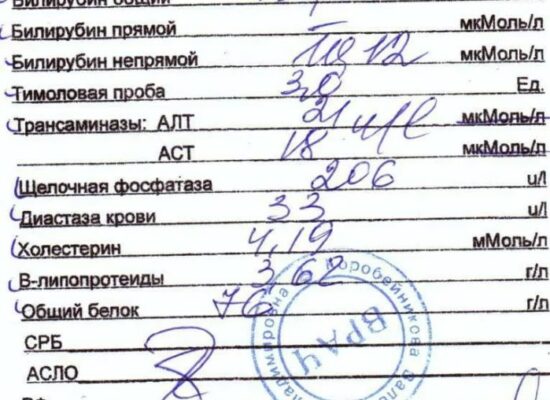 Билирубин общий
Билирубин прямой — мкМоль/л
Билирубин непрямой 12 мкМоль/л
Тимоловая проба 3,0 Ед.
Трансаминазы: АЛТ 21 u/l мкМоль/л
АСТ 18 мкМоль/л
Щелочная фосфатаза 206 u/l
Диастаза крови 33 u/l
Холестерин 4,19 мМоль/л
В-липопротеиды 3,62 г/л
Общий белок 76 г/л
СРБ
АСЛО
Коробейникова
ВРАЧ